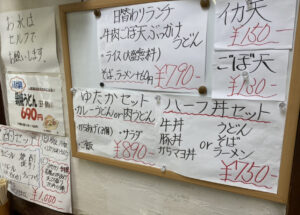 お水は
セルフで
お願いします。
日替わりランチ
牛肉ごぼ天ぶっかけ
うどん
・ライス(大盛無料)
そば、ラーメン+60円
¥790-
イカ天
¥150-
ごぼ天
¥130-
ゆたかセット
カレーうどんor肉うどん
・サラダ
・ご飯
¥890-
ハーフ丼セット
牛丼
豚丼
からマヨ丼
or
うどん
そば
ラーメン
¥750-
うどん
690円
セット
¥1,000